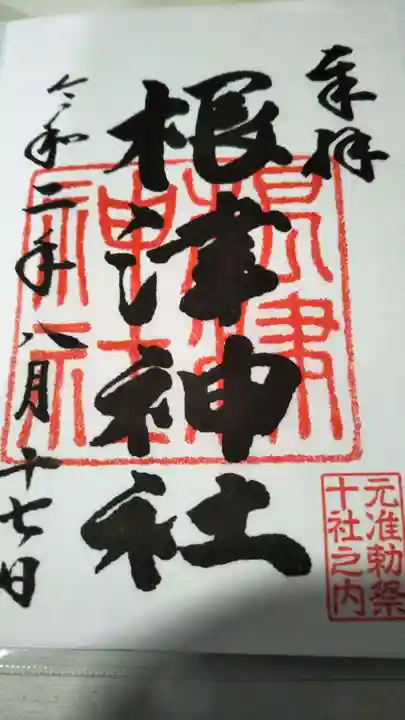 奉拝
根津神社
根津
神社
元准勅祭
十社之内
令和二年八月十七日